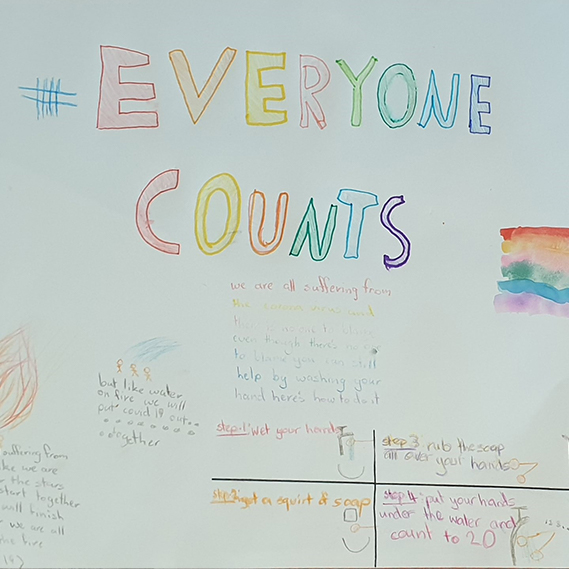 #EVERYONE
COUNTS
we are all suffering from
the corona virus and
there is no one to blame
even though there's no one
to blame you can still
help by washing your
hand here's how to do it
but like water
on fire we will
put covid 19 out
together
step 1: wet your hands
step 3 rub the soap
all over your hands
step 2 get a squirt of soap
step 4: put your hands
under the water and
count to 20
suffering from
we are
the stars
start together
will finish
we are all
the fire